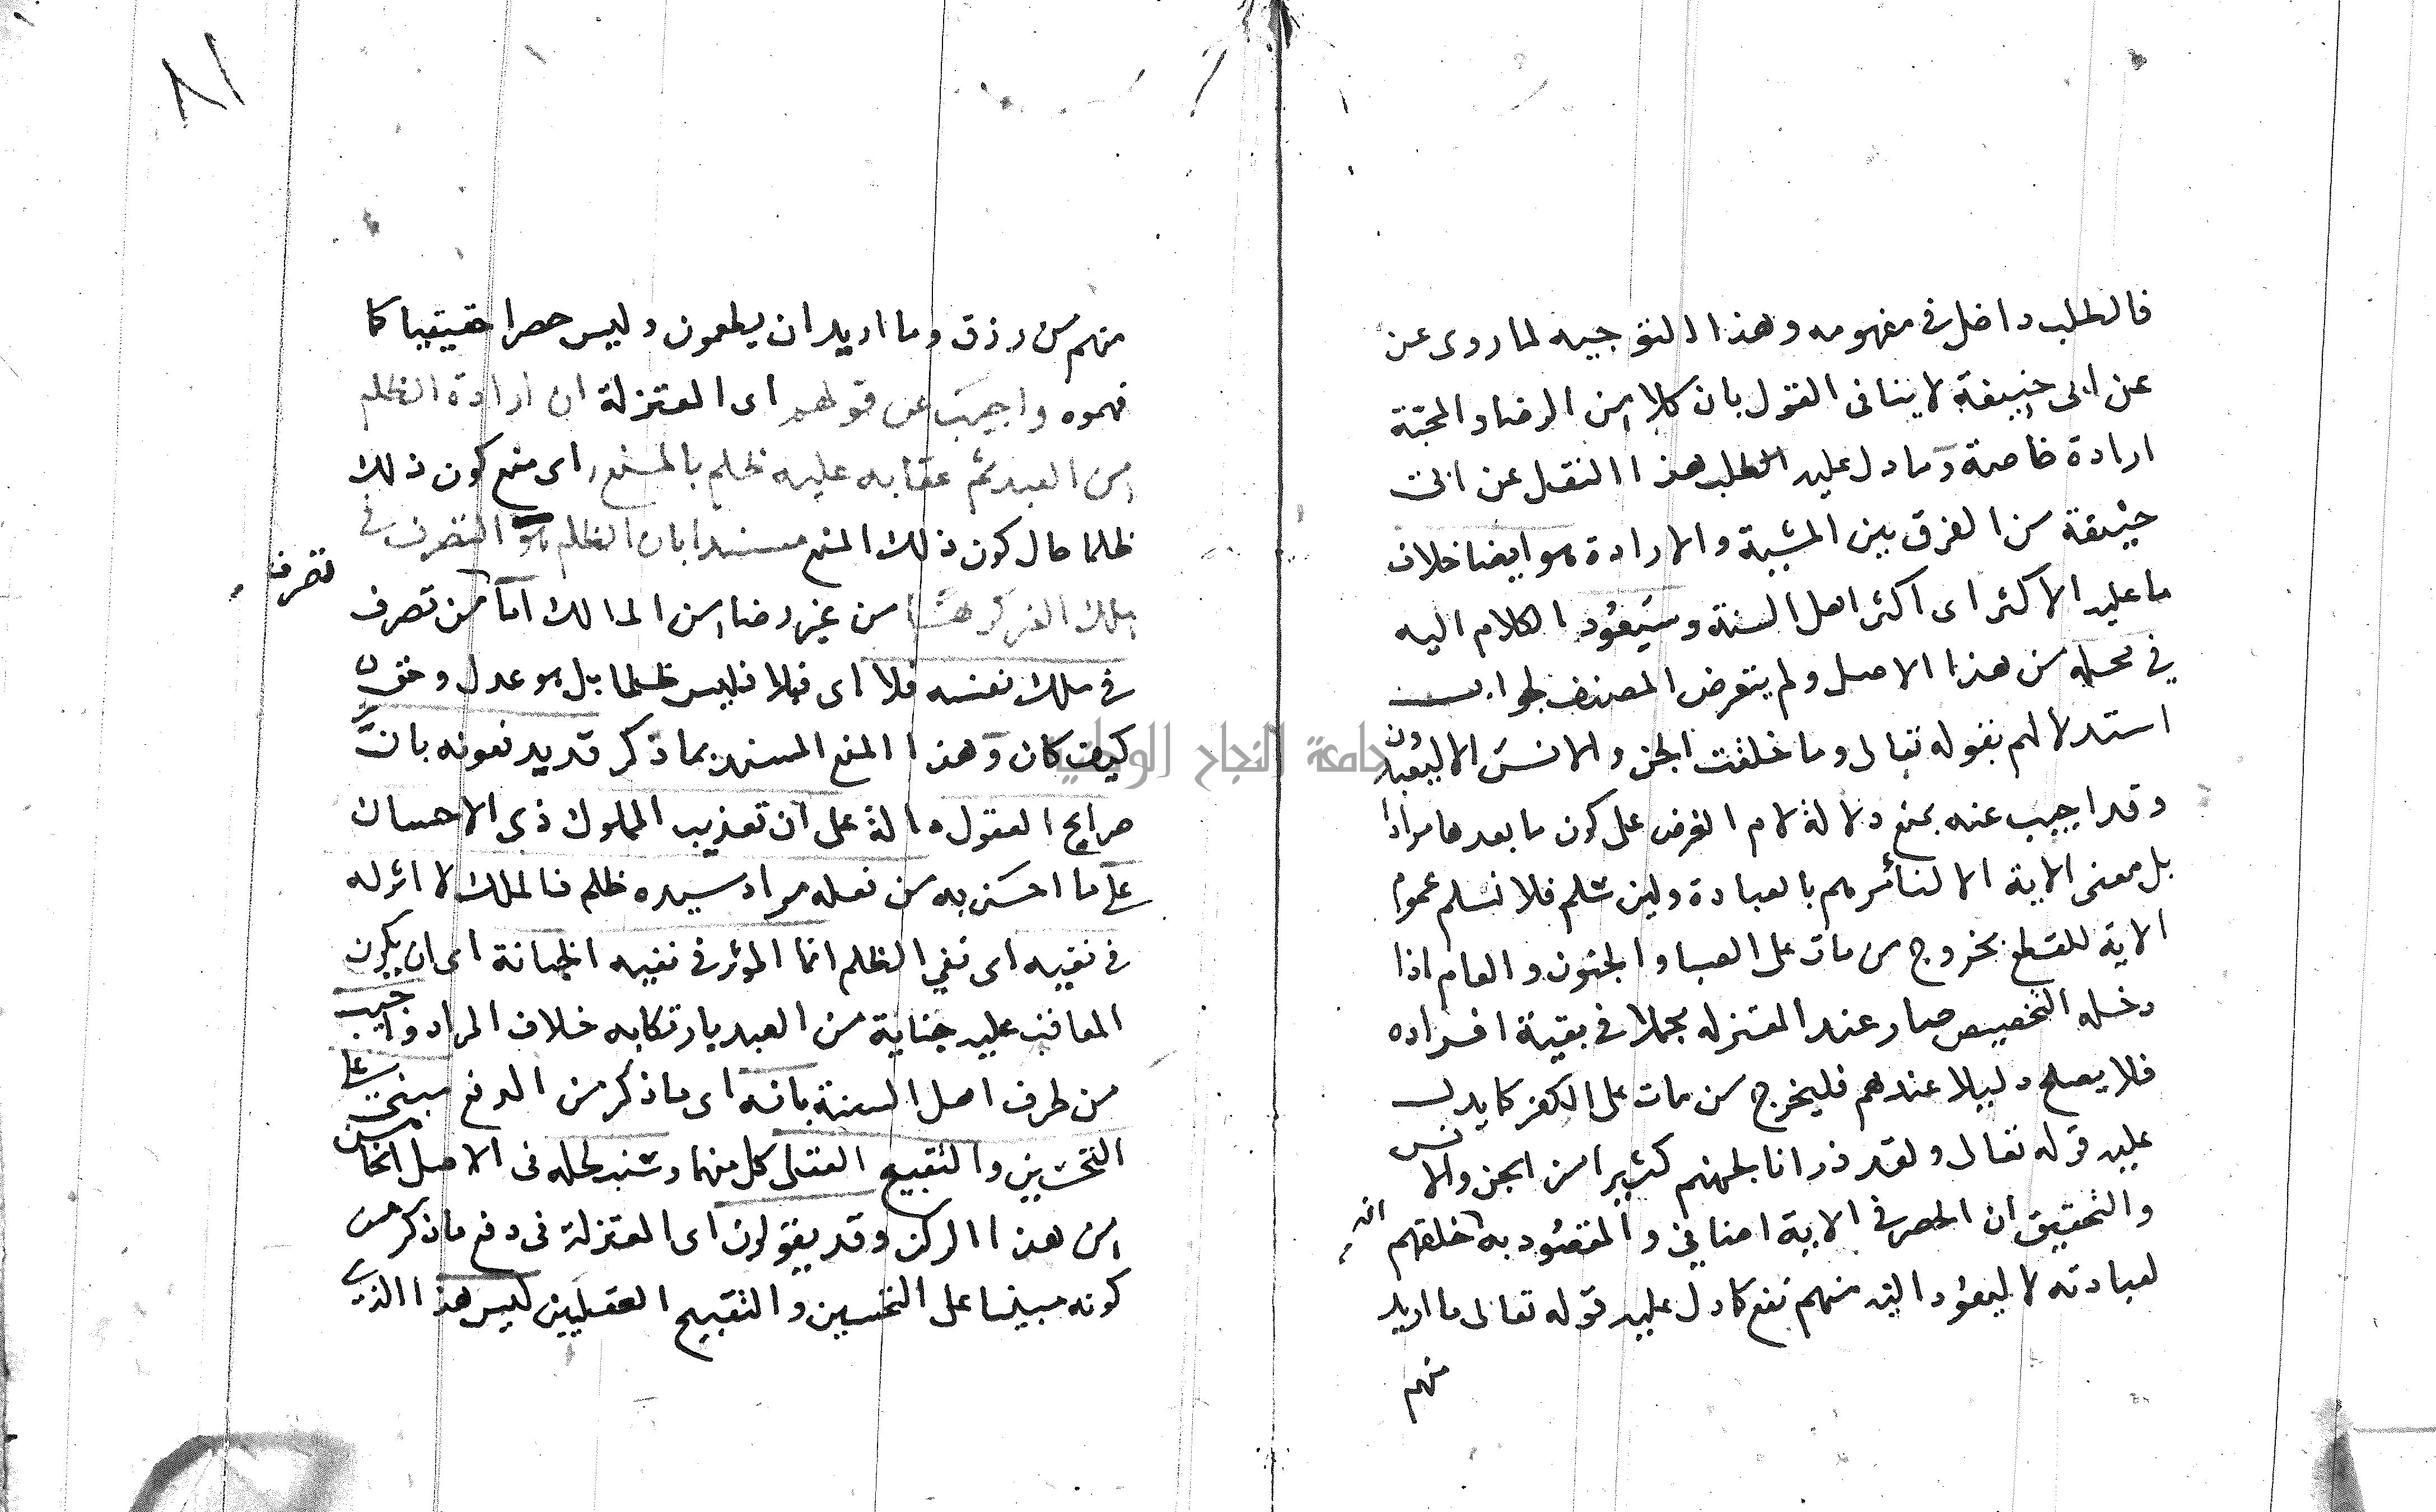 فالطلب داخل في مفهومه وهذا التوجيه لما روى عن
عن ابى حنيفة لا ينافى القول بان كلا من الرضا والمحبة
ارادة خاصة وما دل عليه الطلب هذا النقل عن ابى
حنيفة من الفرق بين المشية والارادة هو ايضا خلاف
ما عليه الاكثر اى اكثر اهل السنة وسَيعُود الكلام اليه
في محله من هذا الاصل ولم يتعرض المصنف لجواب
استدلالهم بقوله تعالى وما خلقت الجن والانس الا ليعبدون
وقد اجيب عنه بمنع دلالة لام الغرض على كون ما بعدها مرادا
بل معنى الاية الا لنأمرهم بالعبادة ولين سُلم فلا نسلم عموم
الاية للقطع بخروج من مات على الصبا والجنون والعام اذا
دخله التخصيص صار عند المعتزله مجملا في بقية افراده
فلا يصلح دليلا عندهم فليخرج من مات على الكفر كما يدل
عليه قوله تعالى ولقد ذرانا لجهنم كثيرا من الجن والانس
والتحقيق ان الحصر في الاية اضافي والمقصُود به انه خلقهم
لعبادته لا ليعُود اليه منهم نفع كما دل عليه قوله تعالى ما اريد
منهم
٨١
منهم من رزق وما اريد ان يطعمون وليس حصرا حقيقيا كما
فهموه واجيبَ عن قولهم اى المعتزلة ان ارادة الظلم
من العبد ثم عقابه عليه ظلم بالمنع اى منع كون ذلك
ظلما حال كون ذلك المنع مسندا بان الظلم هو التصرف في
ملك الغير كرهًا من غير رضا من المالك اما من تصرف
تصرف
في ملك نفسه فلا اى فلا فليس ظلما بل هو عدل وحق
كيف كان وهذا المنع المسند بما ذكر قد يدفعونه بانَّ
صرايح العقول دالة على ان تعذيب المملوك ذى الاحسان
على ما احسَن به من فعله مراد سيده ظلم فالملك لا اثر له
في نفيه اى نفي الظلم انما المؤثر في نفيه الجناية اى ان يكون
المعاقب عليه جناية من العبد بارتكابه خلاف المراد واجيب
من طرف اهل السنة بانه اى ما ذكر من الدفع مبنى على
التحسين والتقبيح العقلى كل منهما وستنبه لحله فى الاصل الخامس
من هذا الركن وقد يقولون اى المعتزلة فى دفع ما ذكر من
كونه مبينا على التحسين والتقبيح العقليين ليس هذا الذى
جامعة النجاح الوطنية